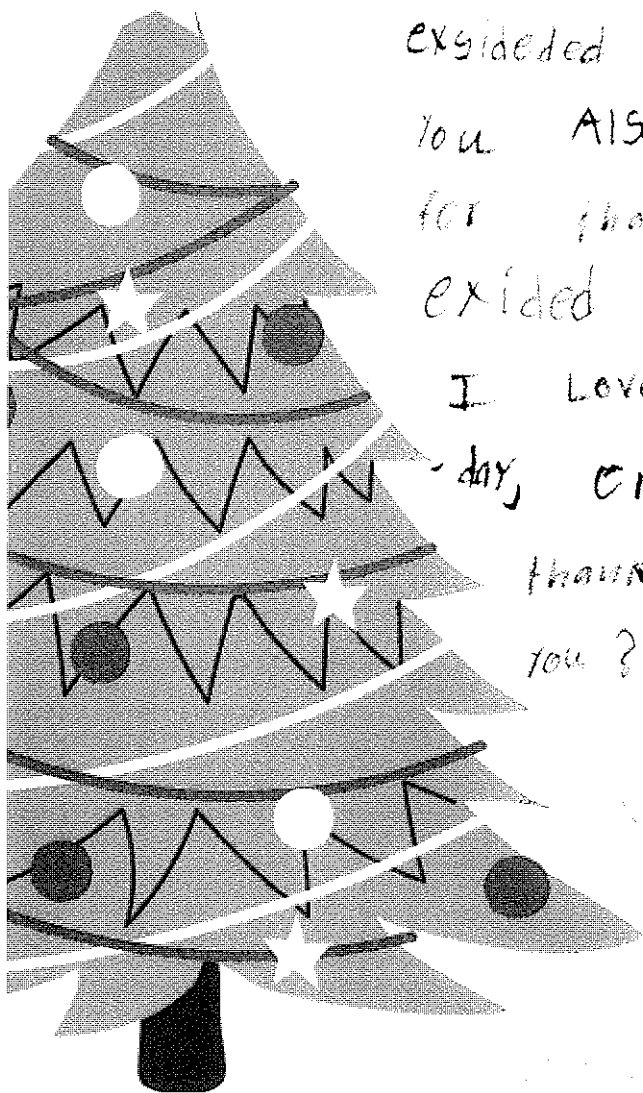 exsideded
You AlS
for tha
exided
I Love
-day, cr
thank
you?